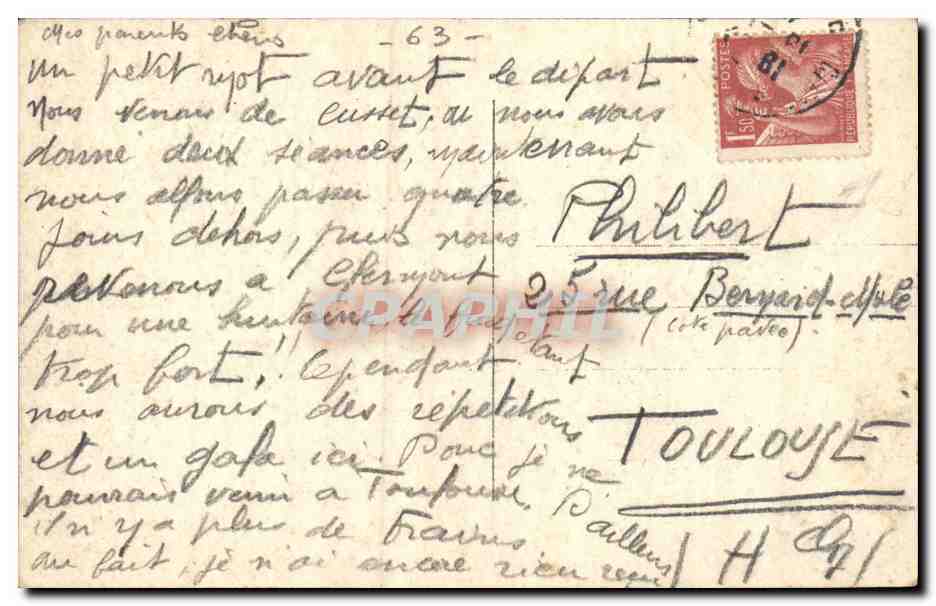 Mes parents chéris
- 63 -
Un petit mot avant le départ
Nous venons de Cusset, ou nous avons
donné deux séances, maintenant
nous allons passer quatre
jours dehors, puis nous
revenons a Clermont
pour une huitaine, le
trop fort, !! Cependant
nous aurons des répétitions
et un gala ici. Donc je ne
pourrais venir a Toulouse, D'ailleurs
il n y a plus de trains
au fait, je n'ai encore rien reçu
POSTES
1F50
REPUBLIQUE FRANÇAISE
18
Philibert
25 rue Bernard-Mulé
(Côte pavée)
TOULOUSE
(H Gne)
CPARHIL